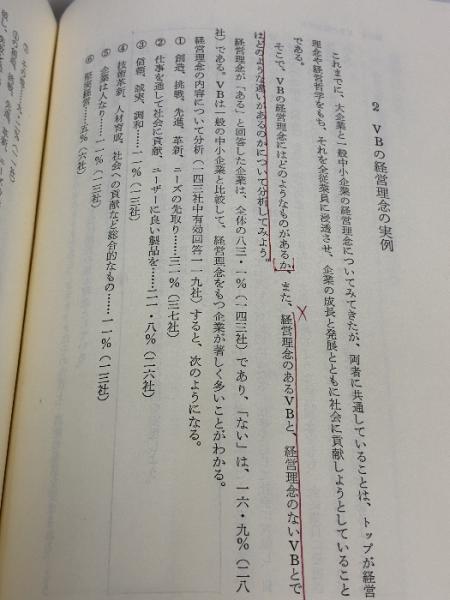 2 VBの経営理念の実例
これまでに、大企業と一般中小企業の経営理念についてみてきたが、両者に共通していることは、トップが経営
理念や経営哲学をもち、それを全従業員に浸透させ、企業の成長と発展とともに社会に貢献しようとしていること
である。
そこで、VBの経営理念にはどのようなものがあるか、また、経営理念のあるVBと、経営理念のないVBとで
はどのような違いがあるのかについて分析してみよう。
経営理念が「ある」と回答した企業は、全体の八三・一%(一四三社)であり、「ない」は、一六・九%(二八
社)である。VBは一般の中小企業と比較して、経営理念をもつ企業が著しく多いことがわかる。
経営理念の内容について分析(一四三社中有効回答一一九社)すると、次のようになる。
① 創造、挑戦、先進、革新、ニーズの先取り……三一%(三七社)
② 仕事を通して社会に貢献、ユーザーに良い製品を……二一・八%(二六社)
③ 信頼、誠実、調和……一一%(一三社)
④ 技術革新、人材育成、社会への貢献など総合的なもの……一一%(一三社)
⑤ 企業は人なり……一一%(一三社)
⑥ 堅実経営……五%(六社)